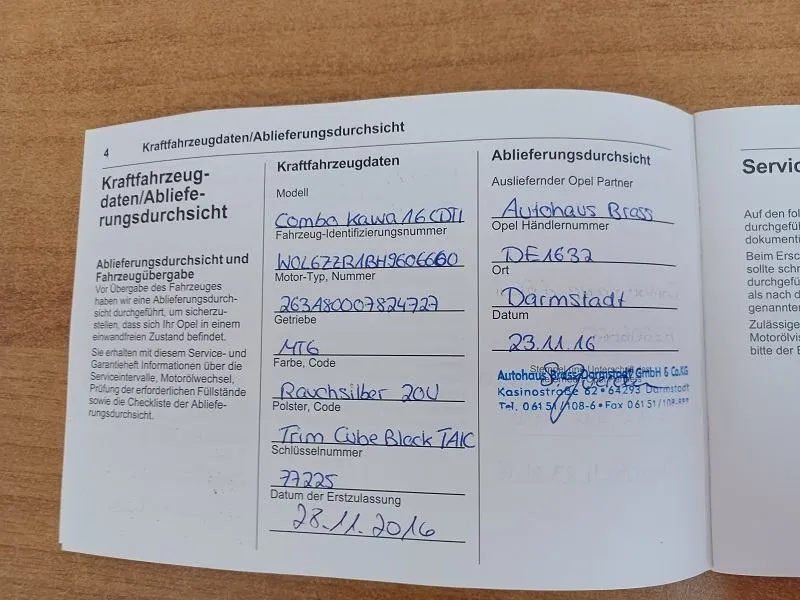 4 Kraftfahrzeugdaten/Ablieferungsdurchsicht
Kraftfahrzeug-
daten/Abliefe-
rungsdurchsicht
Ablieferungsdurchsicht und
Fahrzeugübergabe
Vor Übergabe des Fahrzeuges
haben wir eine Ablieferungsdurch-
sicht durchgeführt, um sicherzu-
stellen, dass sich Ihr Opel in einem
einwandfreien Zustand befindet.
Sie erhalten mit diesem Service- und
Garantieheft Informationen über die
Serviceintervalle, Motorölwechsel,
Prüfung der erforderlichen Füllstände
sowie die Checkliste der Abliefe-
rungsdurchsicht.
Kraftfahrzeugdaten
Modell
Combo Kawa 16 CDTI
Fahrzeug-Identifizierungsnummer
W0L6ZZR1BH9606660
Motor-Typ, Nummer
263A80007824727
Getriebe
MT6
Farbe, Code
Rauchsilber 20U
Polster, Code
Trim Cube Black TAIC
Schlüsselnummer
77225
Datum der Erstzulassung
28.11.2016
Ablieferungsdurchsicht
Ausliefernder Opel Partner
Autohaus Brass
Opel Händlernummer
DE1632
Ort
Darmstadt
Datum
23.11.16
Stempel und Unterschrift des
Autohaus Brass Darmstadt GmbH & Co.KG
Kasinostraße 62 • 64293 Darmstadt
Tel. 06151/108-6 • Fax 06151/108-
Servic
Auf den fol
durchgefüh
dokumenti
Beim Ersc
sollte schr
durchgefü
als nach d
genannten
Zulässige
Motorölvis
bitte der B